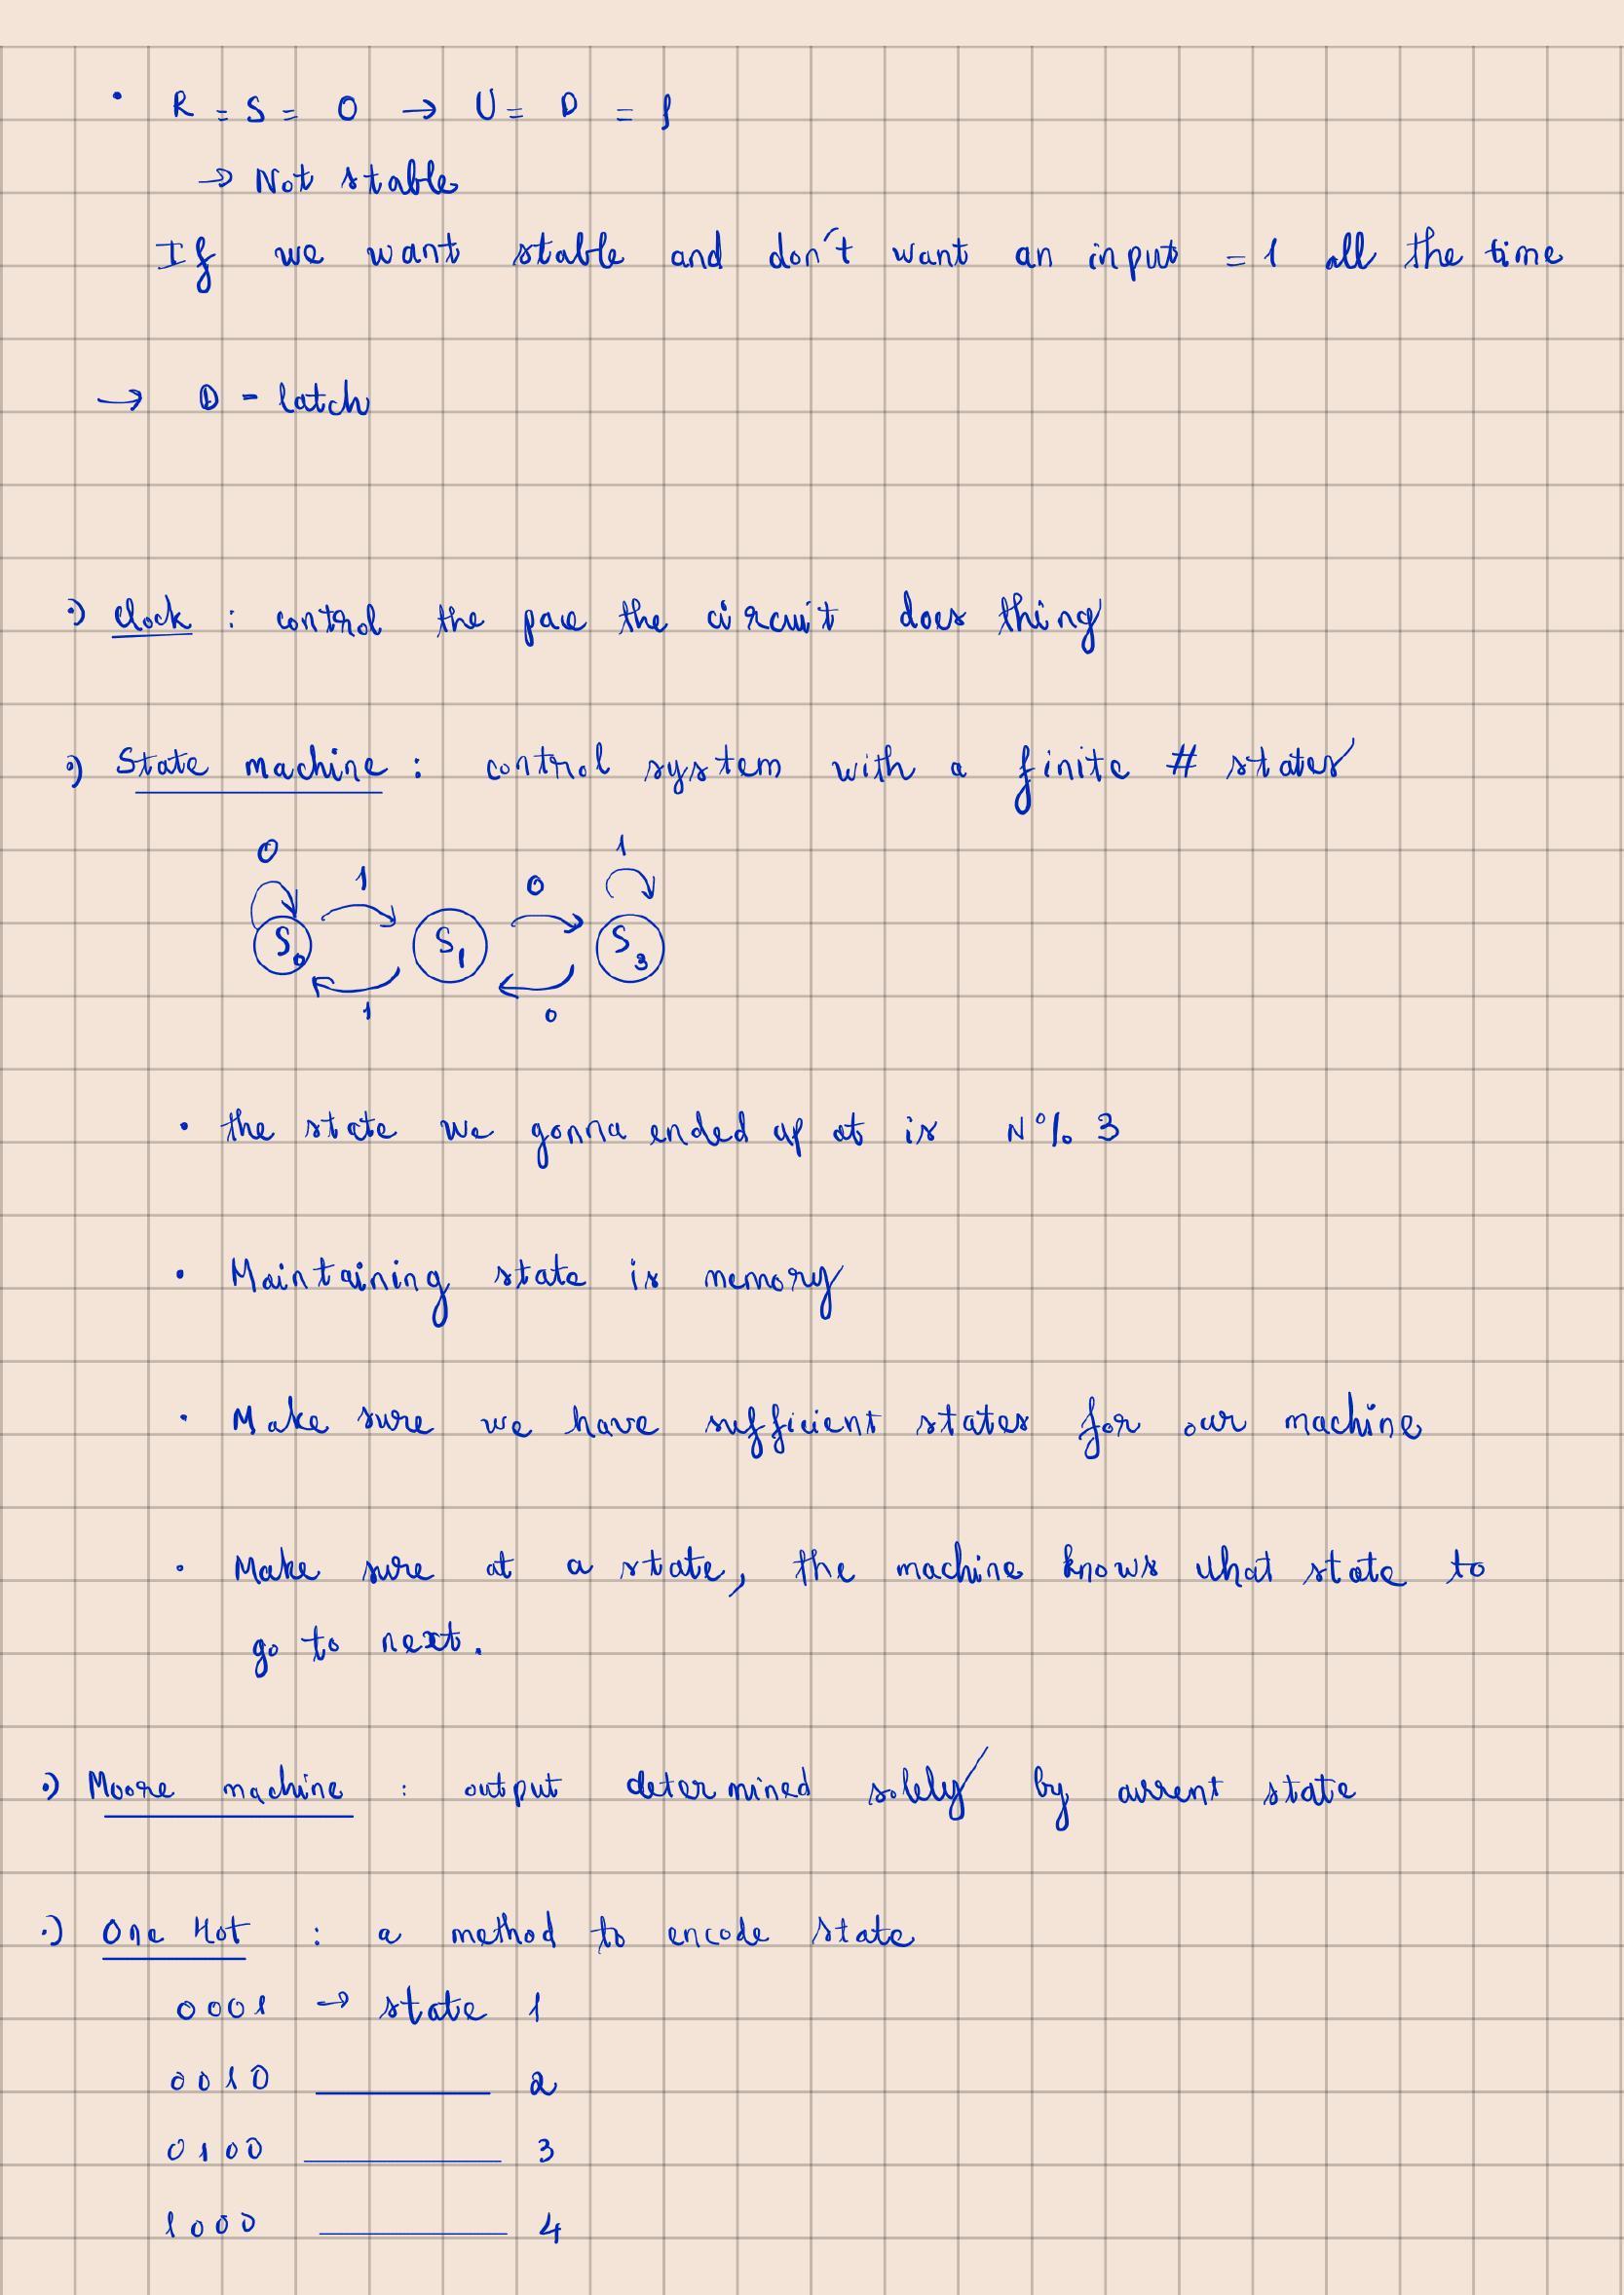 • R = S = 0 → U = D = 1
→ Not stable
If we want stable and don't want an input = 1 all the time
→ D - latch
·) Clock : control the pace the circuit does thing
·) State machine : control system with a finite # states
0 1 0 1
S0 S1 S3
1 0
• the state we gonna ended up at is N % 3
• Maintaining state is memory
• Make sure we have sufficient states for our machine
• Make sure at a state, the machine knows what state to
go to next.
·) Moore machine : output determined solely by current state
·) One Hot : a method to encode state
0001 → state 1
0010 ―― 2
0100 ―― 3
1000 ―― 4